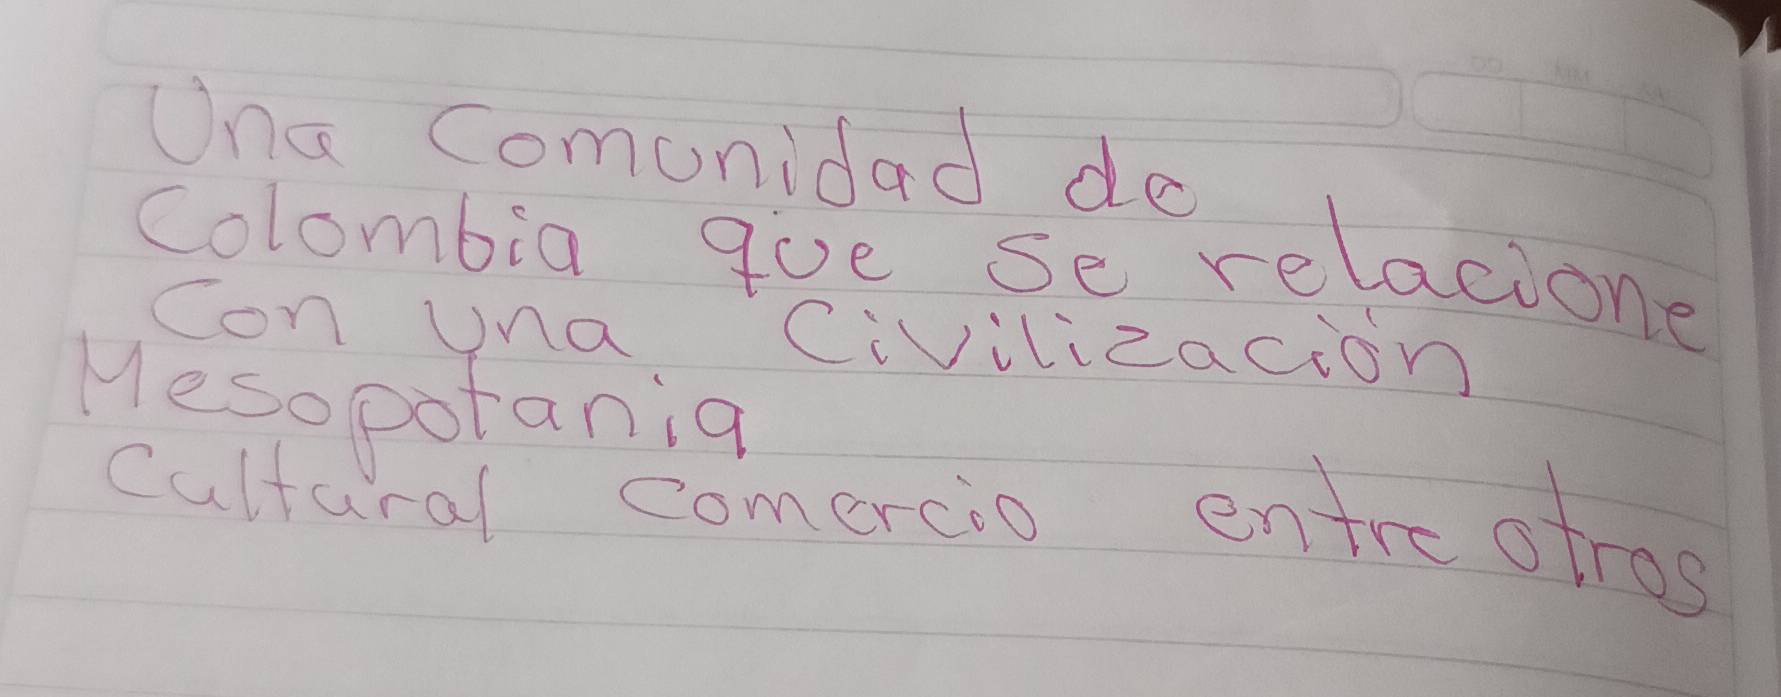 Una Comunidad de
Colombia que se relacione
Con una Civilización
Mesopotania
Cultural comercio entre otros